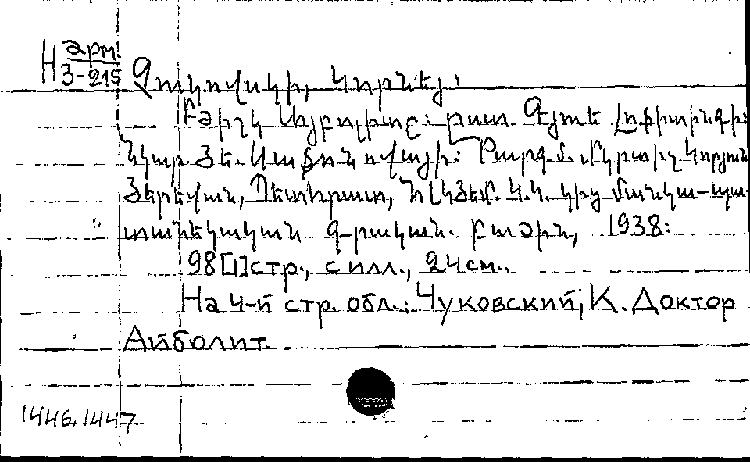 Н Арм.
3-215
Չուկովսկի, Կորնեյ:
Բժիշկ Այբոլիտը: ըստ Հյուե Լոֆտինգի:
Նկար. Յե. Սաֆոնովայի: Թարգմ.
Յերեվան, Պետհրատ, կից մանկա-պա-
տանեկական գ-րական. բաժին, 1938:
98[1]стр., с илл., 24см.
На 4-й стр. обл.: Чуковский, К. Доктор
Айболит.
1446.1447